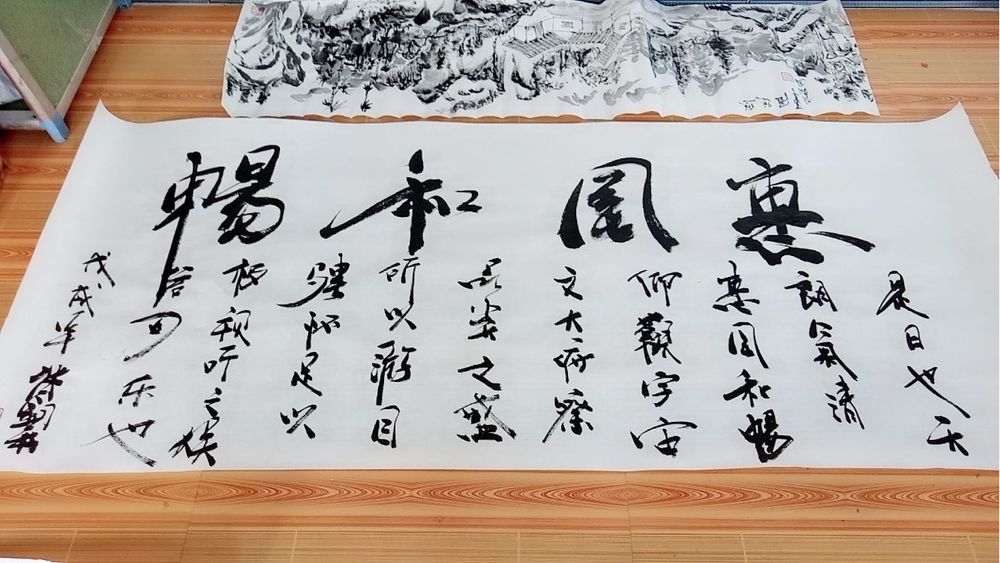 惠風和暢
是日也天
朗氣清
惠風和暢
仰觀宇宙
之大俯察
品类之盛
所以游目
騁怀足以
极视听之娱
信可乐也
戊戌年